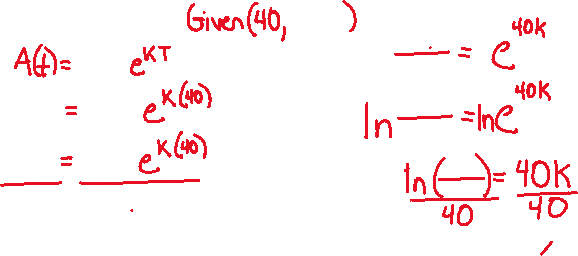 Given (40, )
A(t) = e^KT
= e^K(40)
= e^K(40)
___ = e^40K
ln ___ = ln e^40K
ln(___)/40 = 40K/40